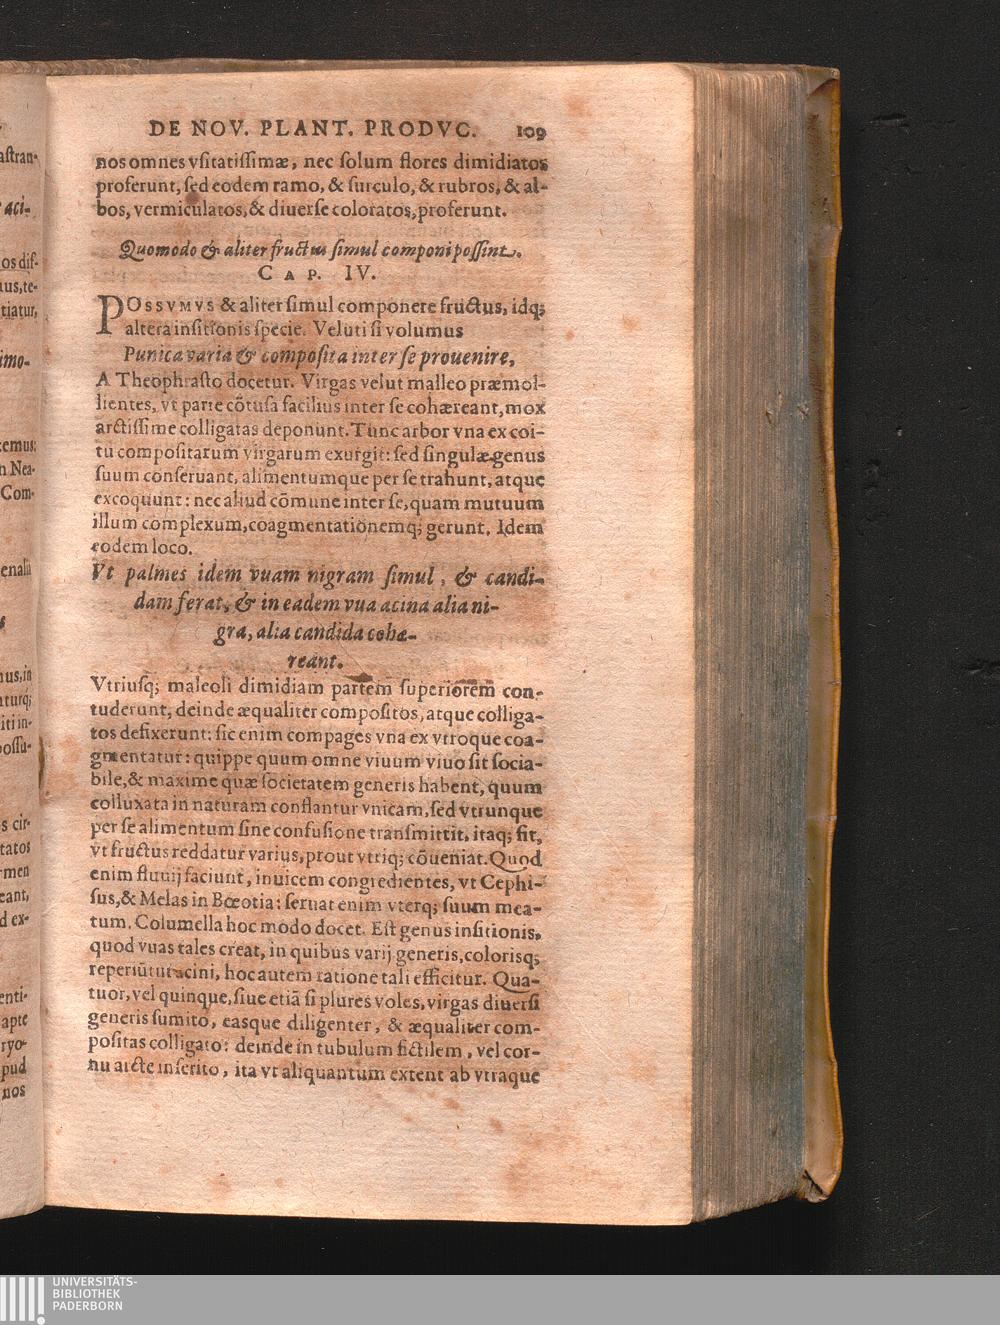 DE NOV. PLANT. PRODVC. 109
nos omnes vsitatissimæ, nec solum flores dimidiatos
proferunt, sed eodem ramo, & surculo, & rubros, & al-
bos, vermiculatos, & diuerse coloratos, proferunt.
Quomodo & aliter fructus simul componi possint.
CAP. IV.
POSSVMVS & aliter simul componere fructus, idq;
altera insitionis specie. Veluti si volumus
Punica varia & composita inter se prouenire,
A Theophrasto docetur. Virgas velut malleo præmol-
lientes, vt parte cõtusa facilius inter se cohæreant, mox
arctissime colligatas deponunt. Tunc arbor vna ex coi-
tu compositarum virgarum exurgit: sed singulæ genus
suum conseruant, alimentumque per se trahunt, atque
excoquunt: nec aliud cõmune inter se, quam mutuum
illum complexum, coagmentationemq; gerunt. Idem
eodem loco.
Vt palmes idem vuam nigram simul, & candi-
dam ferat, & in eadem vua acina alia ni-
gra, alia candida cohæ-
reant.
Vtriusq; maleoli dimidiam partem superiorem con-
tuderunt, deinde æqualiter compositos, atque colliga-
tos defixerunt: sic enim compages vna ex vtroque coa-
gmentatur: quippe quum omne viuum viuo sit socia-
bile, & maxime quæ societatem generis habent, quum
colluxata in naturam conflantur vnicam, sed vtrunque
per se alimentum sine confusione transmittit, itaq; fit,
vt fructus reddatur varius, prout vtriq; cõueniat. Quod
enim fluuij faciunt, inuicem congredientes, vt Cephi-
sus, & Melas in Bœotia: seruat enim vterq; suum mea-
tum. Columella hoc modo docet. Est genus insitionis,
quod vuas tales creat, in quibus varij generis, colorisq;
reperiũtur acini, hoc autem ratione tali efficitur. Qua-
tuor, vel quinque, siue etiã si plures voles, virgas diuersi
generis sumito, easque diligenter, & æqualiter com-
positas colligato: deinde in tubulum fictilem, vel cor-
nu arcte inserito, ita vt aliquantum extent ab vtraque
UNIVERSITÄTS-
BIBLIOTHEK
PADERBORN